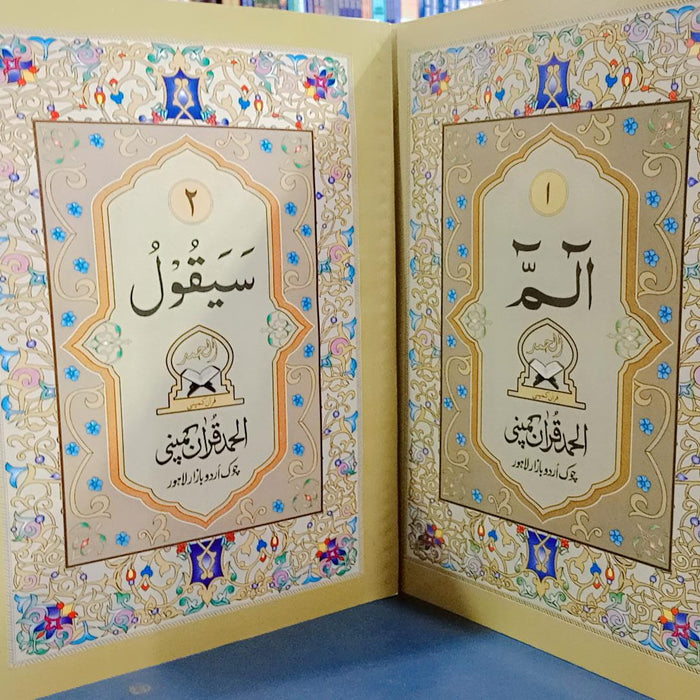 ١
الٓمّٓ
الحمد
قرآن کمپنی
الحمد قرآن کمپنی
چوک اُردو بازار لاہور
٢
سَيَقُوْلُ
الحمد
قرآن کمپنی
الحمد قرآن کمپنی
چوک اُردو بازار لاہور